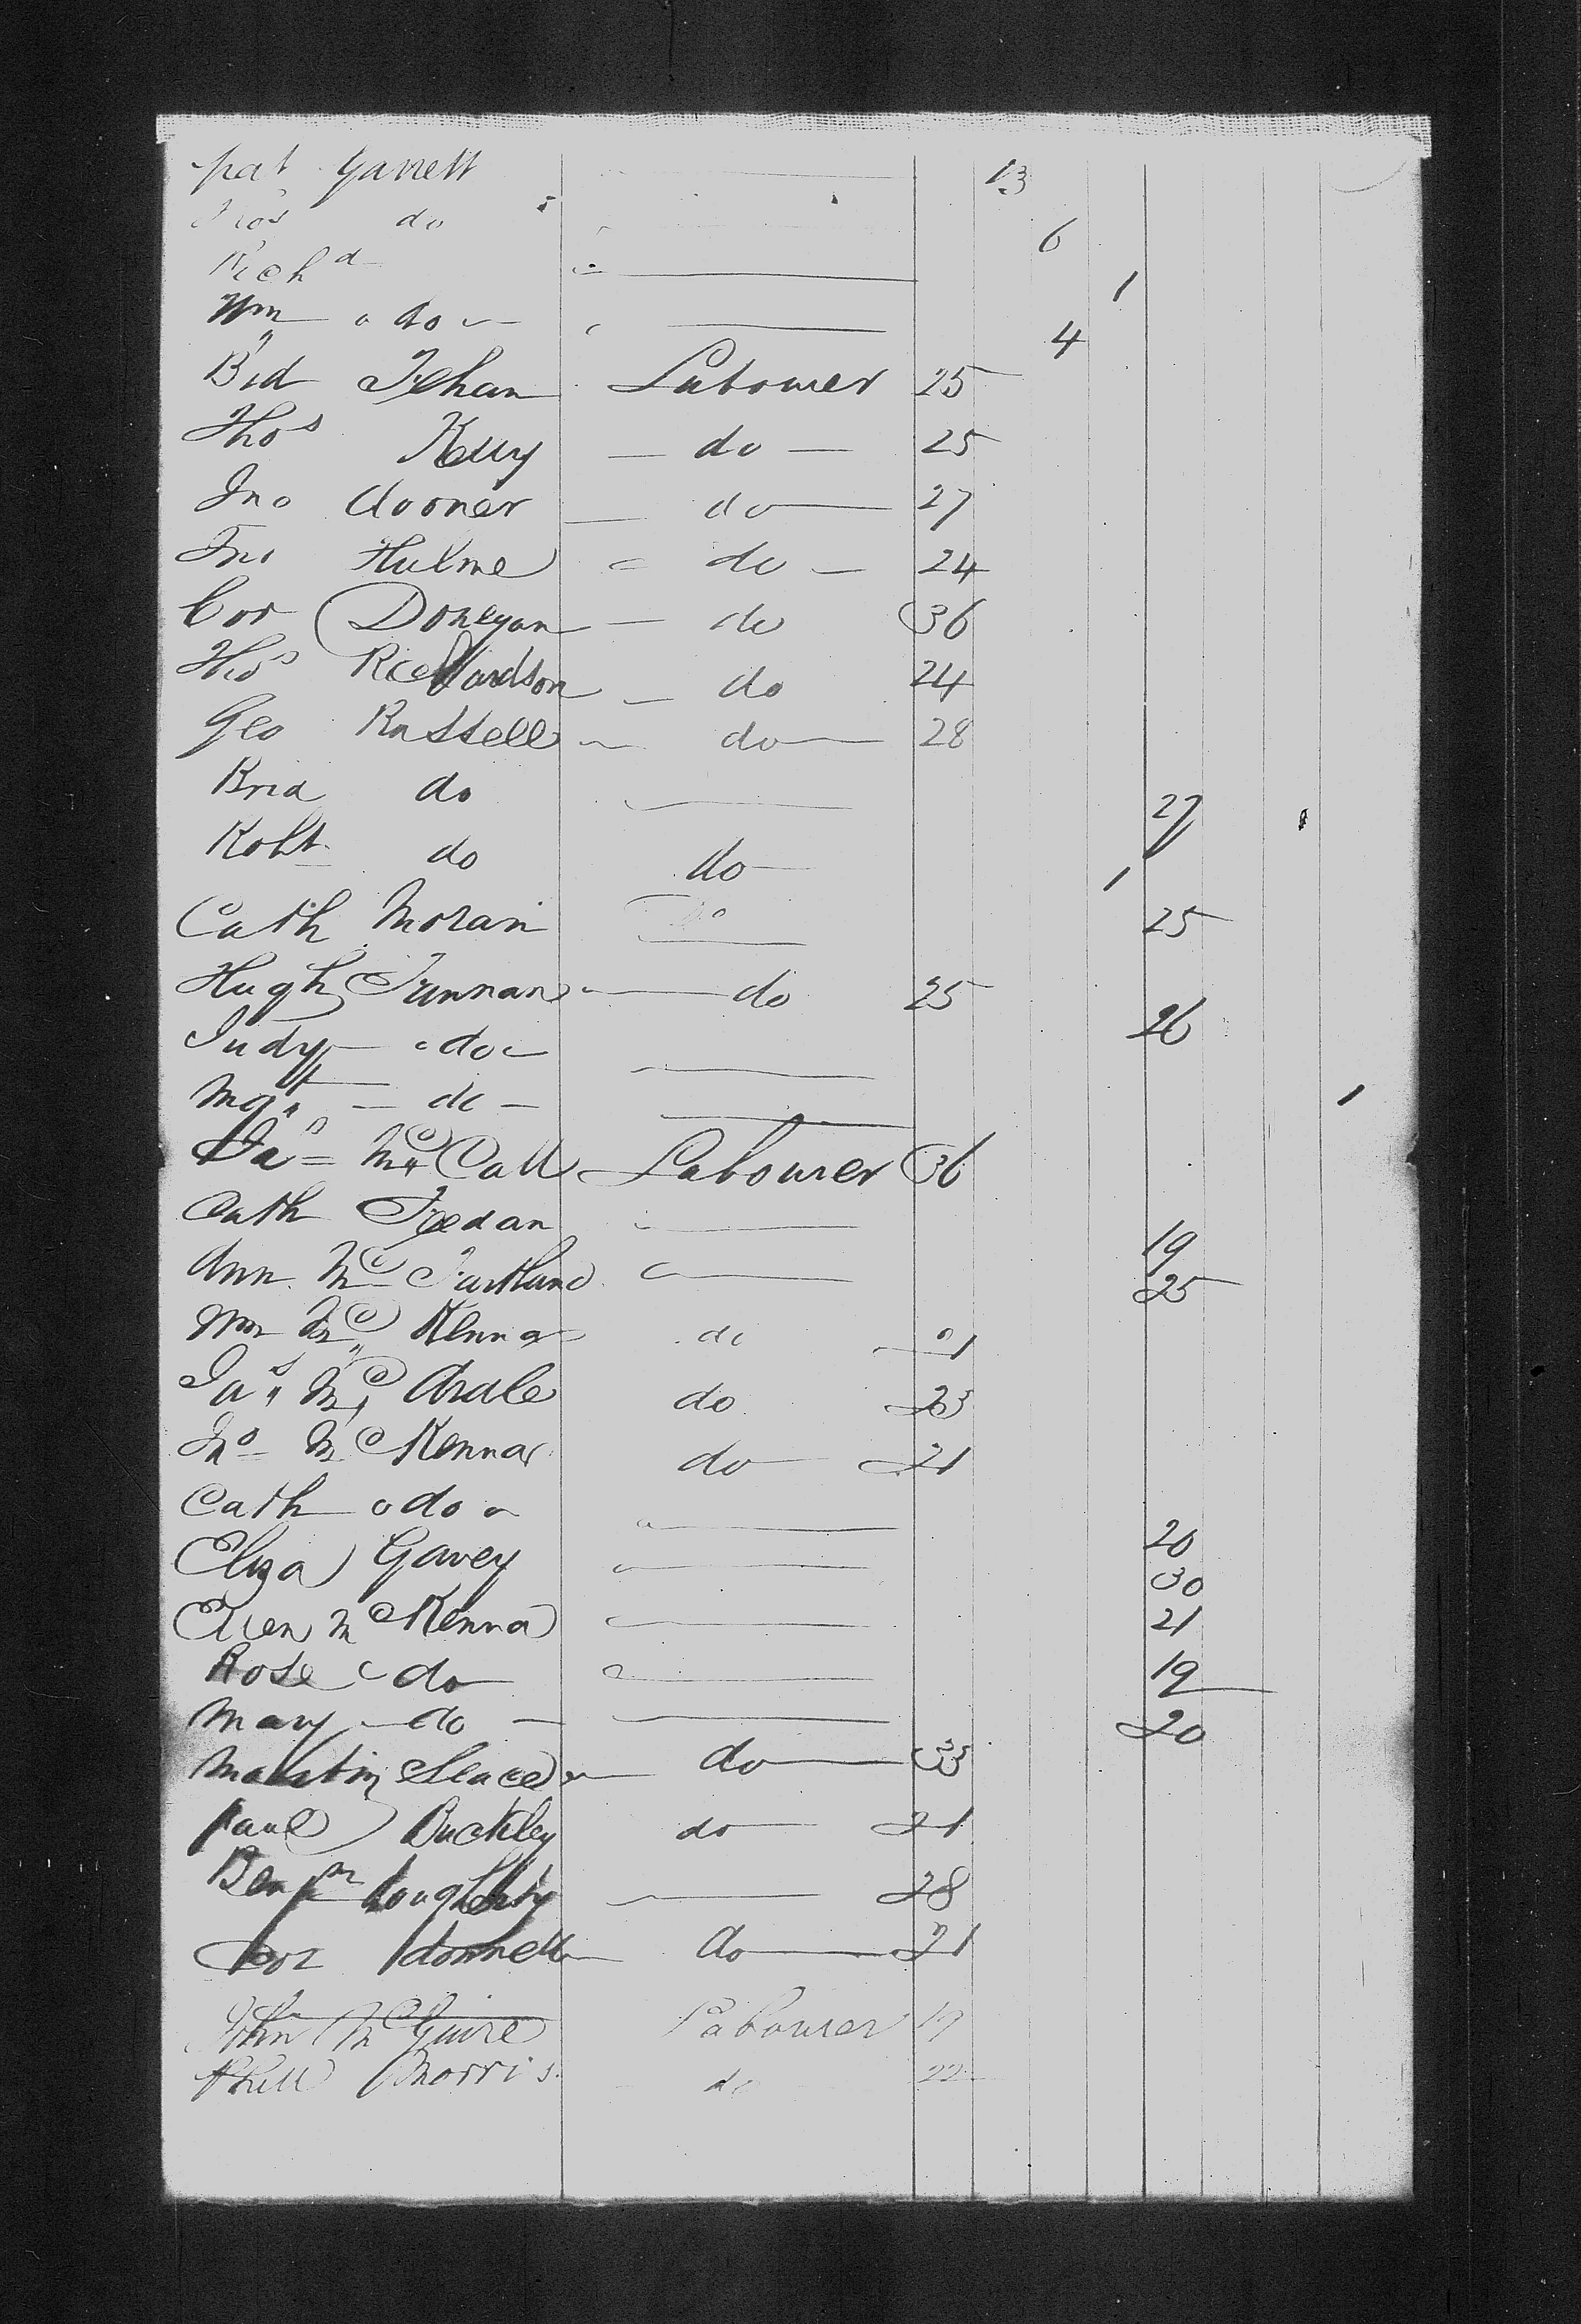 Pat Garrett 13
Thos do 6
Richd 1
Wm do 4
Bid Fehan Labourer 25
Thos Kelly do 25
Jno dooner do 27
Jno Hulme do 24
Cor Donegan do 36
Thos Richardson do 24
Geo Russell do 28
Brid do 27
Robt do do 1
Cath Moran do 25
Hugh Tunnan do 25
Judy do 26
Mgt do 1
Jas McCall Labourer 36
Cath 19
Ann McPartland 25
Wm McKenna do 21
Jas Mc do 23
Jno McKenna do 21
Cath do 20
Eliza Gavey 30
Ellen McKenna 21
Rose do 19
Mary do 20
Martin do 33
Paul Buckley do 21
Benjn dougherty 28
do 21
John McGuire Labourer 19
Phill Morris do 22